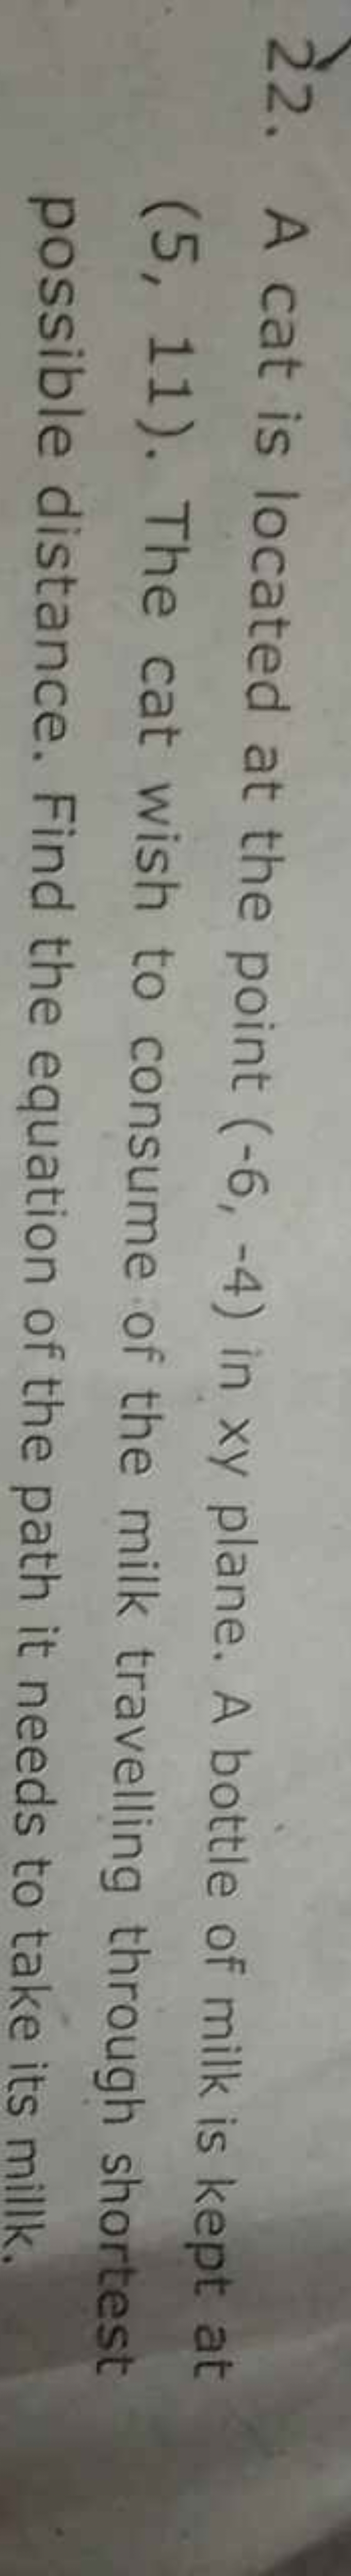 22. A cat is located at the point (-6, -4) in xy plane. A bottle of milk is kept at
(5, 11). The cat wish to consume of the milk travelling through shortest
possible distance. Find the equation of the path it needs to take its millk.